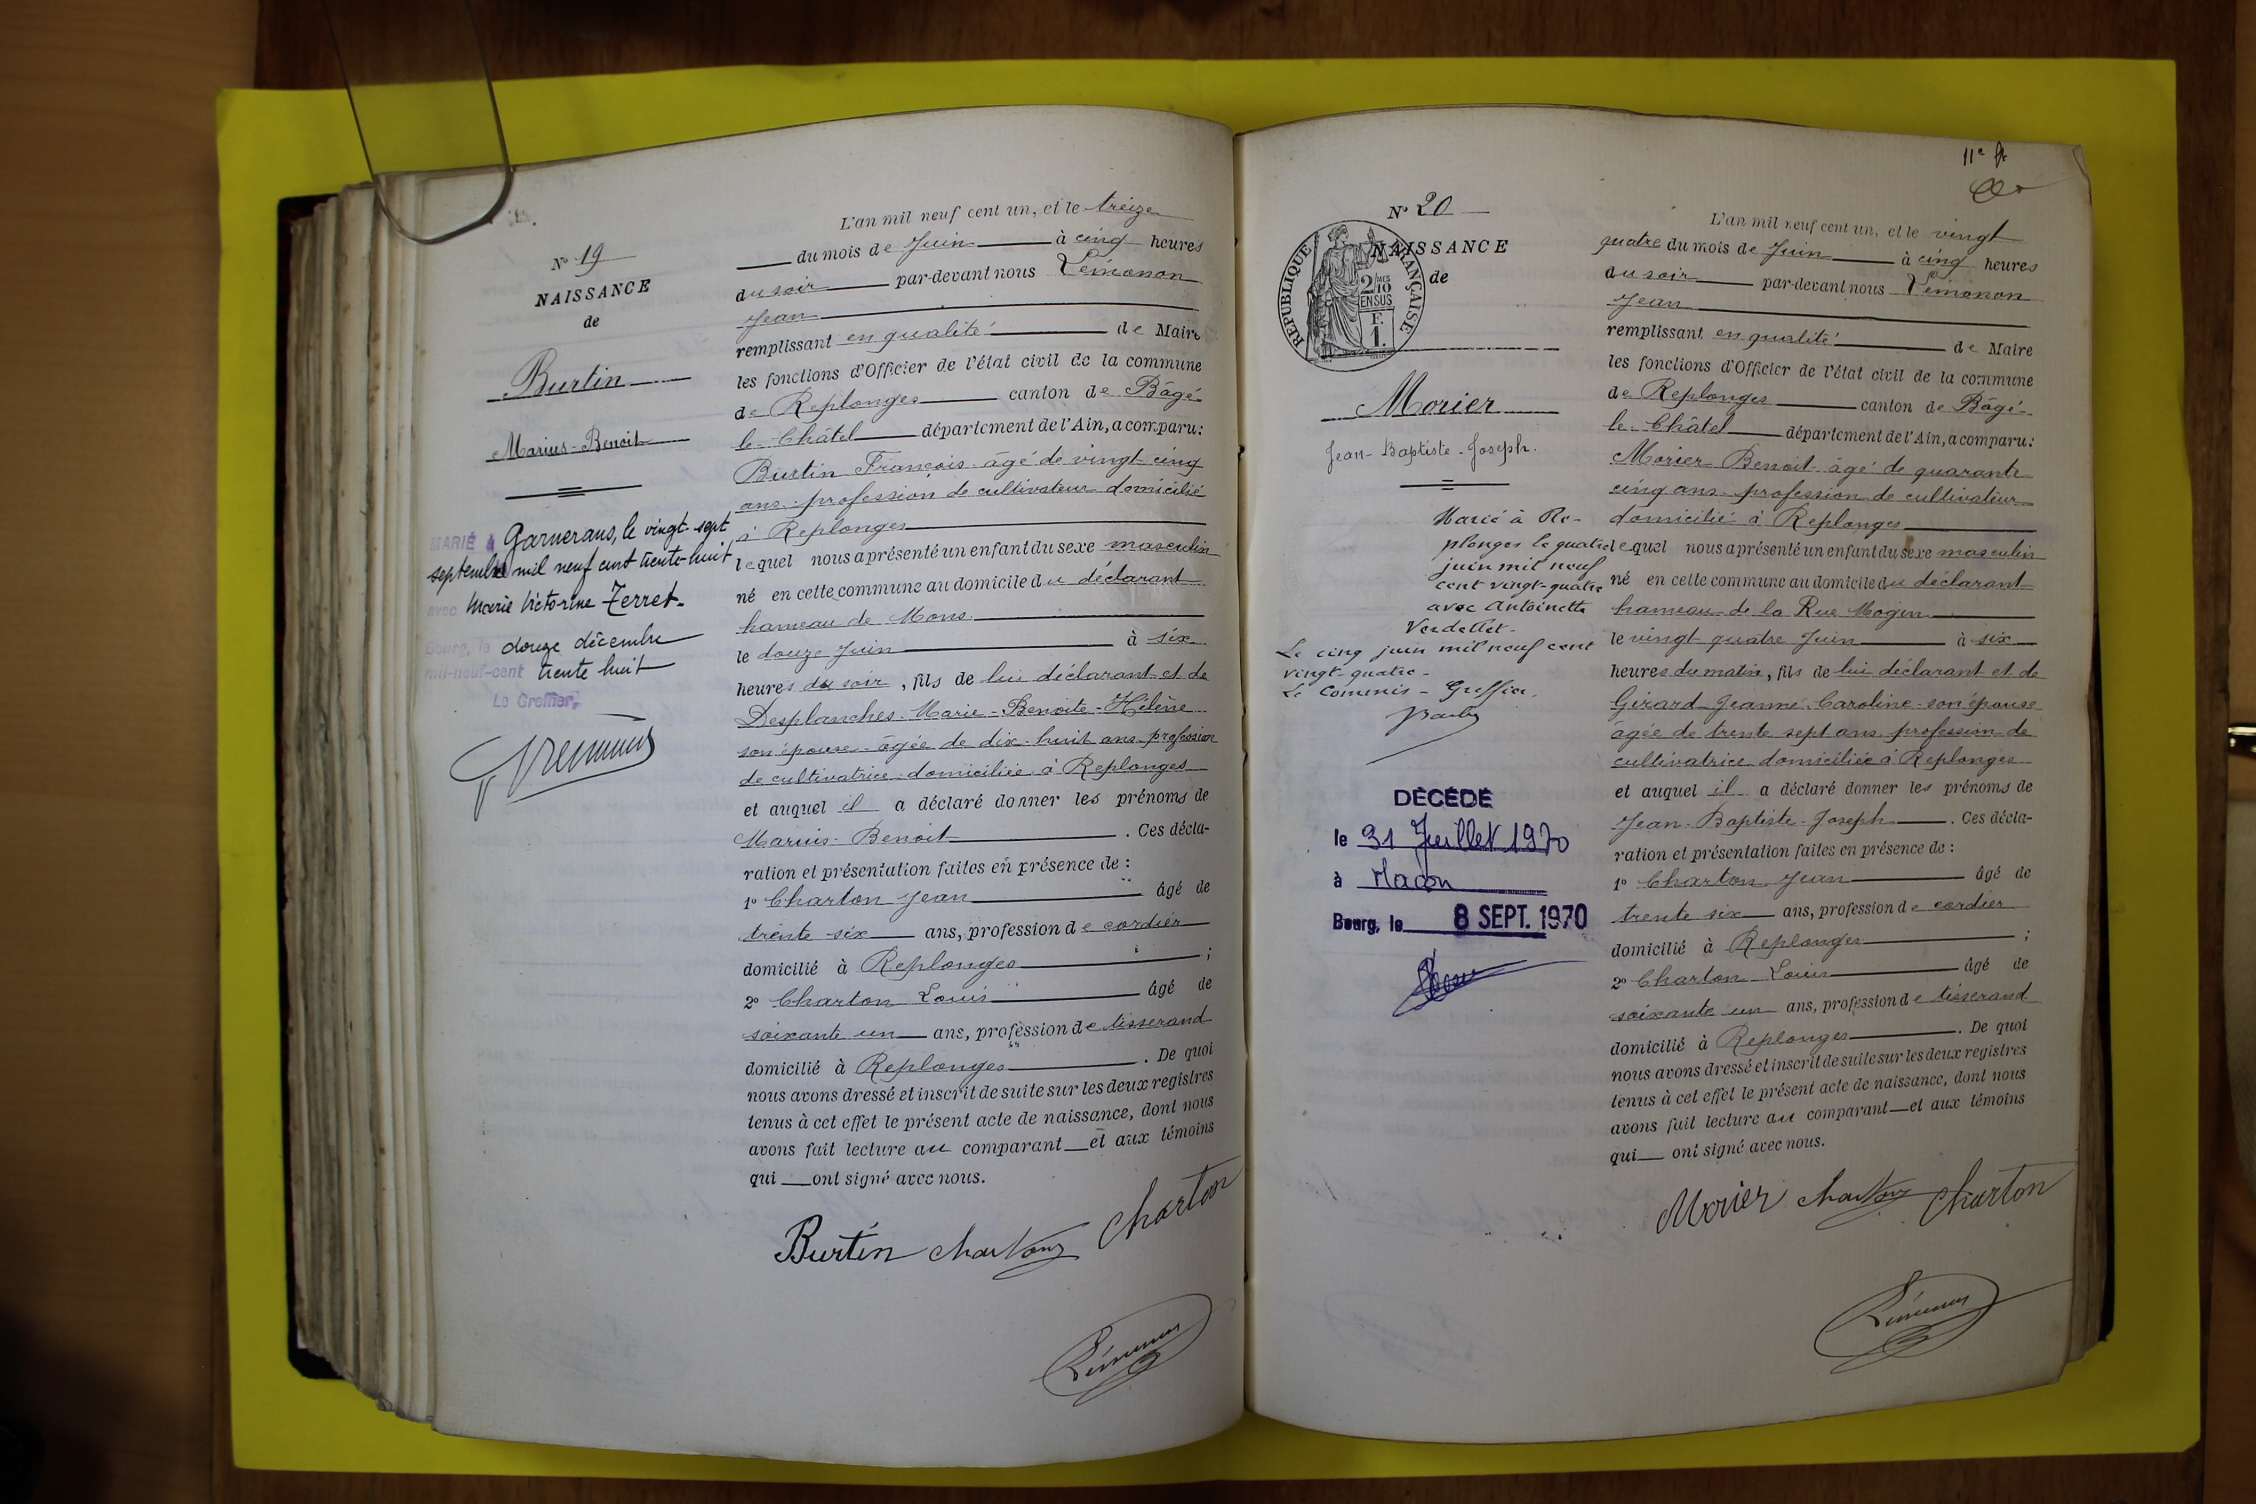 N° 19
NAISSANCE
de
Burtin
Marius-Benoit
MARIÉ à Garnerans, le vingt-sept
septembre mil neuf cent trente-huit
avec Marie Victorine Terret.
Bourg, le douze décembre
mil-neuf-cent trente huit
Le Greffier,
L'an mil neuf cent un, et le treize
du mois de Juin à cinq heures
du soir par-devant nous Lémonon
Jean
remplissant en qualité de Maire
les fonctions d'Officier de l'état civil de la commune
de Replonges canton de Bâgé-
le-Châtel département de l'Ain, a comparu:
Burtin François âgé de vingt-cinq
ans profession de cultivateur domicilié
à Replonges
lequel nous a présenté un enfant du sexe masculin
né en cette commune au domicile du déclarant
hameau de Mons
le douze Juin à six
heures du soir, fils de lui déclarant et de
Desplanches Marie-Benoite-Hélène
son épouse âgée de dix-huit ans profession
de cultivatrice domiciliée à Replonges
et auquel il a déclaré donner les prénoms de
Marius-Benoit. Ces décla-
ration et présentation faites en présence de:
1° Charton Jean âgé de
trente-six ans, profession de cordier
domicilié à Replonges;
2° Charton Louis âgé de
soixante un ans, profession de tisserand
domicilié à Replonges. De quoi
nous avons dressé et inscrit de suite sur les deux registres
tenus à cet effet le présent acte de naissance, dont nous
avons fait lecture au comparant et aux témoins
qui ont signé avec nous.
Burtin Charton Charton
Lémonon
11e
N° 20
NAISSANCE
de
RÉPUBLIQUE FRANÇAISE
2/10
EN SUS
F.
1.
Morier
Jean-Baptiste-Joseph.
Marié à Re-
plonges le quatre
juin mil neuf
cent vingt-quatre
avec Antoinette
Verdellet.
Le cinq juin mil neuf cent
vingt-quatre.
Le Commis-Greffier.
DÉCÉDÉ
le 31 Juillet 1970
à Macon
Bourg, le 8 SEPT. 1970
L'an mil neuf cent un, et le vingt
quatre du mois de Juin à cinq heures
du soir par-devant nous Lémonon
Jean
remplissant en qualité de Maire
les fonctions d'Officier de l'état civil de la commune
de Replonges canton de Bâgé-
le-Châtel département de l'Ain, a comparu:
Morier Benoit âgé de quarante
cinq ans profession de cultivateur
domicilié à Replonges
lequel nous a présenté un enfant du sexe masculin
né en cette commune au domicile du déclarant
hameau de la Rue Mogin
le vingt quatre Juin à six
heures du matin, fils de lui déclarant et de
Girard Jeanne Caroline son épouse
âgée de trente sept ans profession de
cultivatrice domiciliée à Replonges
et auquel il a déclaré donner les prénoms de
Jean-Baptiste-Joseph. Ces décla-
ration et présentation faites en présence de:
1° Charton Jean âgé de
trente six ans, profession de cordier
domicilié à Replonges;
2° Charton Louis âgé de
soixante un ans, profession de tisserand
domicilié à Replonges. De quoi
nous avons dressé et inscrit de suite sur les deux registres
tenus à cet effet le présent acte de naissance, dont nous
avons fait lecture au comparant et aux témoins
qui ont signé avec nous.
Morier Charton Charton
Lémonon